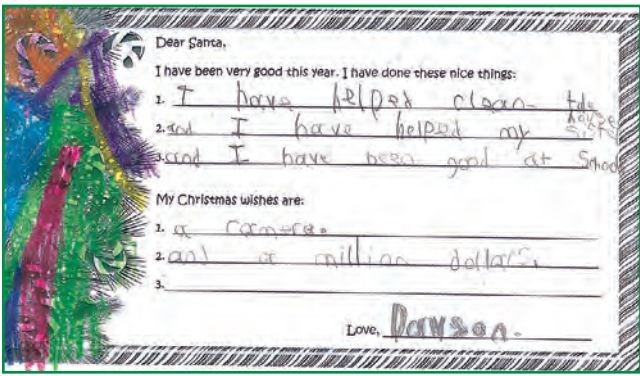 Dear Santa,
I have been very good this year. I have done these nice things:
1. I have helped clean the house
2. and I have helped my sister
3. and I have been good at School
My Christmas wishes are:
1. a camera.
2. and a million dollars.
3.
Love, Dawson.